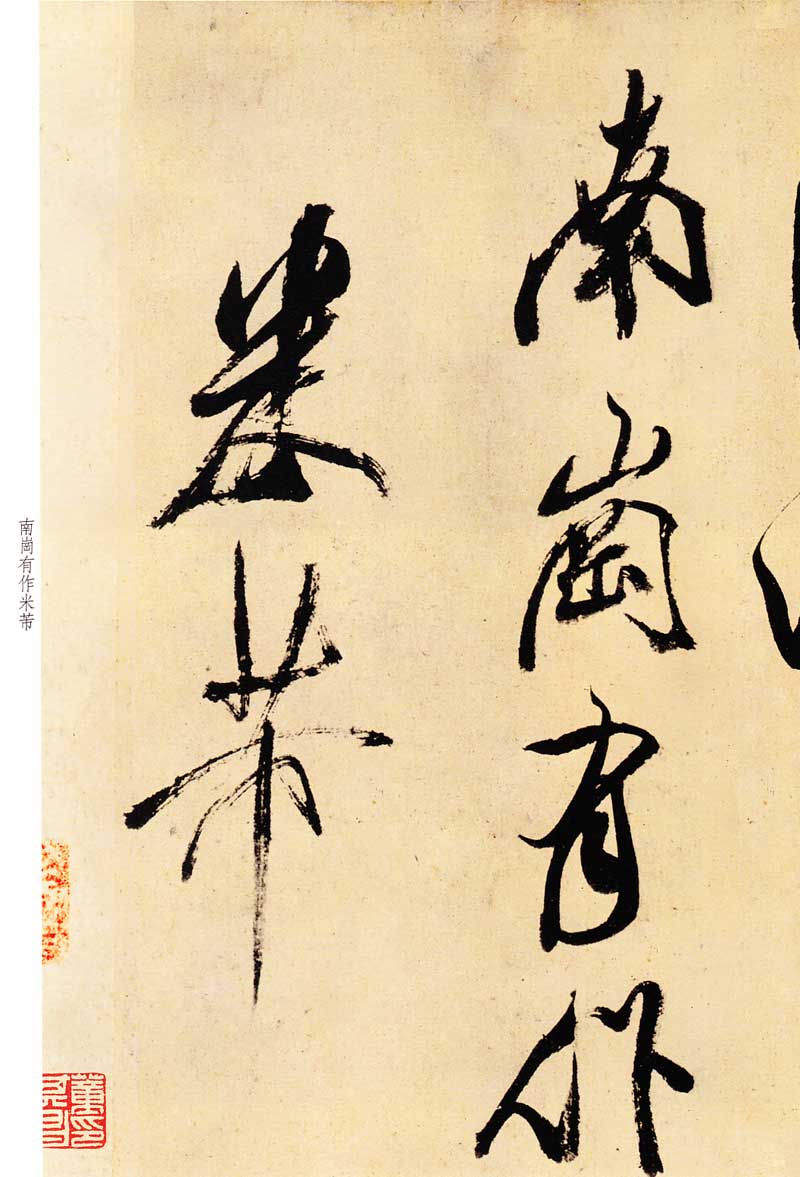 南崗有作
米芾
南崗有作米芾